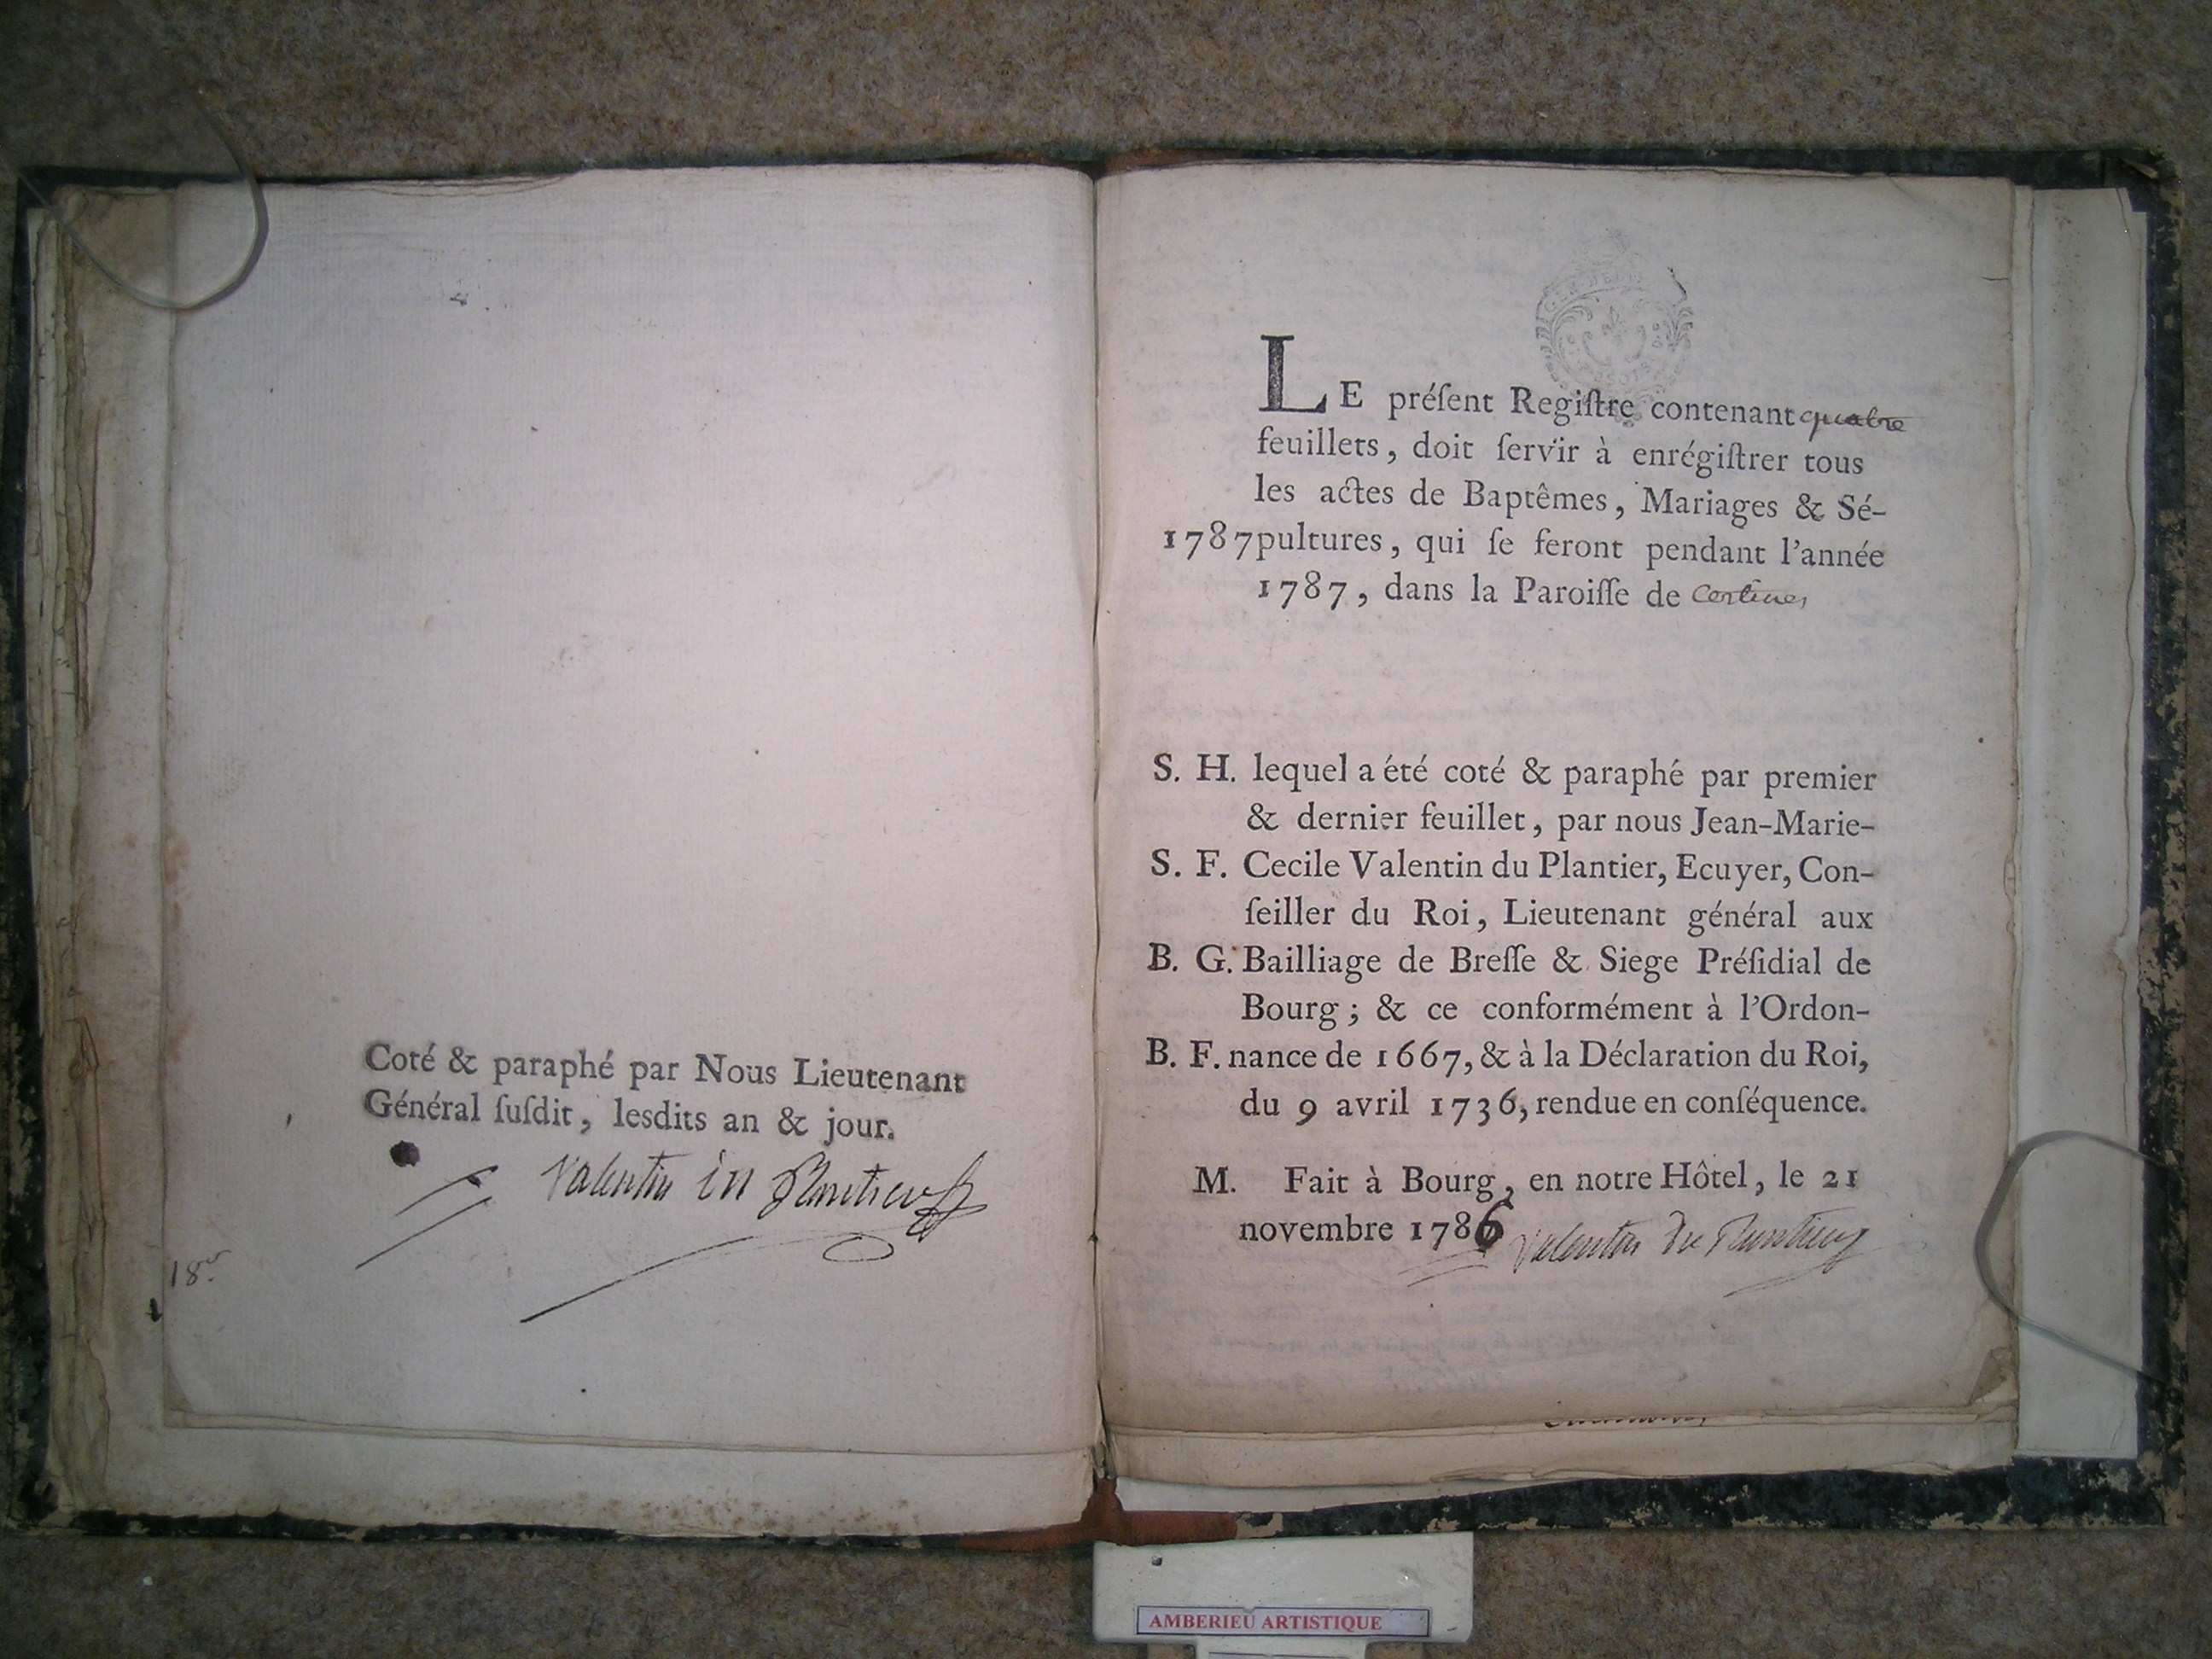 Coté & paraphé par Nous Lieutenant
Général ſuſdit, lesdits an & jour.
Valentin du Plantier
18
LE préſent Regiſtre contenant quatre
feuillets, doit ſervir à enrégiſtrer tous
les actes de Baptêmes, Mariages & Sé-
1787 pultures, qui ſe feront pendant l'année
1787, dans la Paroiſſe de Certines
S. H. lequel a été coté & paraphé par premier
& dernier feuillet, par nous Jean-Marie-
S. F. Cecile Valentin du Plantier, Ecuyer, Con-
ſeiller du Roi, Lieutenant général aux
B. G. Bailliage de Breſſe & Siege Préſidial de
Bourg; & ce conformément à l'Ordon-
B. F. nance de 1667, & à la Déclaration du Roi,
du 9 avril 1736, rendue en conſéquence.
M. Fait à Bourg, en notre Hôtel, le 21
novembre 1786 Valentin du Plantier
AMBERIEU ARTISTIQUE